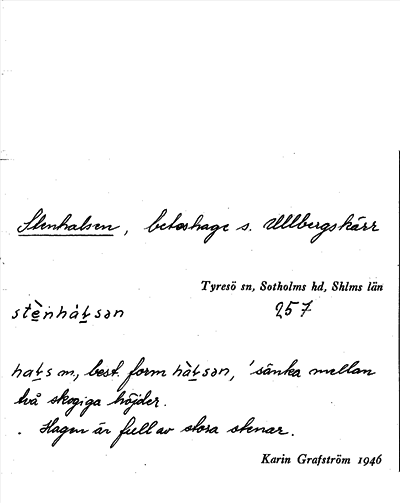 Stenhalsen, beteshage s. Ullbergskärr
Tyresö sn, Sotholms hd, Shlms län
stènhàḷsən 257
haḷs m, best. form hàḷsən, 'sänka mellan
två skogiga höjder.
Hagen är full av stora stenar.
Karin Grafström 1946